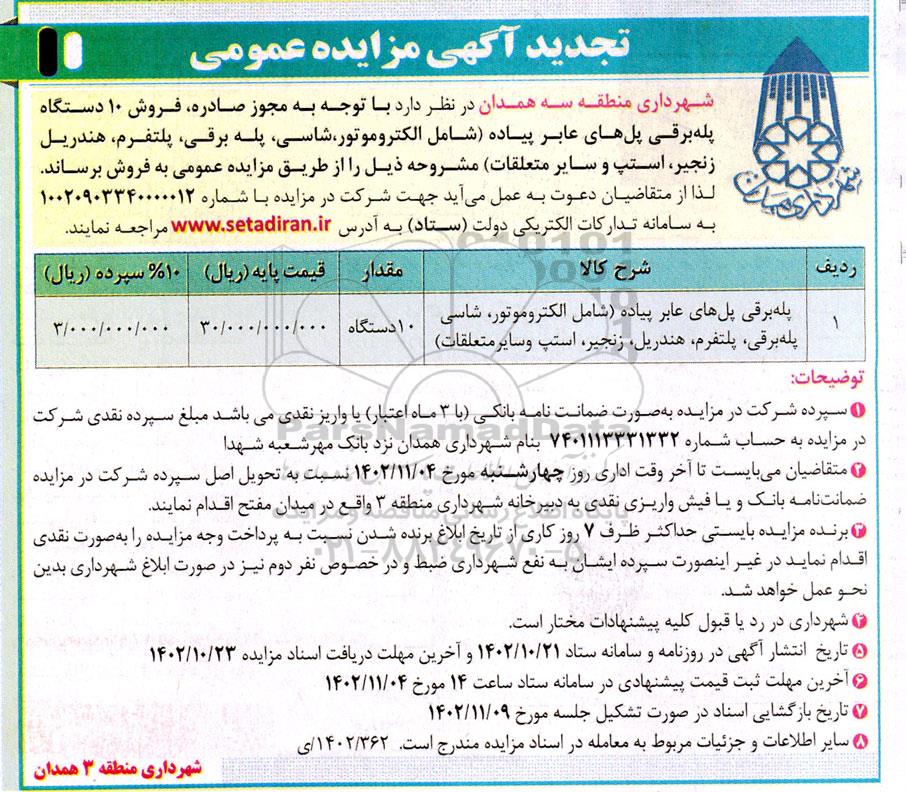 تجدید آگهی مزایده عمومی
شهرداری همدان
شهرداری منطقه سه همدان در نظر دارد با توجه به مجوز صادره، فروش ۱۰ دستگاه
پله‌برقی پل‌های عابر پیاده (شامل الکتروموتور،شاسی، پله برقی، پلتفرم، هندریل
زنجیر، استپ و سایر متعلقات) مشروحه ذیل را از طریق مزایده عمومی به فروش برساند.
لذا از متقاضیان دعوت به عمل می‌آید جهت شرکت در مزایده با شماره ۱۰۰۲۰۹۰۳۳۴۰۰۰۰۰۱۲
به سامانه تدارکات الکتریکی دولت (ستاد) به آدرس www.setadiran.ir مراجعه نمایند.
ردیف شرح کالا مقدار قیمت پایه (ریال) ۱۰% سپرده (ریال)
۱ پله‌برقی پل‌های عابر پیاده (شامل الکتروموتور، شاسی
پله‌برقی، پلتفرم، هندریل، زنجیر، استپ وسایرمتعلقات) ۱۰دستگاه ۳۰/۰۰۰/۰۰۰/۰۰۰ ۳/۰۰۰/۰۰۰/۰۰۰
توضیحات:
۱ سپرده شرکت در مزایده به‌صورت ضمانت نامه بانکی (با ۳ ماه اعتبار) یا واریز نقدی می باشد مبلغ سپرده نقدی شرکت
در مزایده به حساب شماره ۷۴۰۱۱۱۳۳۳۱۳۳۲ بنام شهرداری همدان نزد بانک مهرشعبه شهدا
۲ متقاضیان می‌بایست تا آخر وقت اداری روز چهارشنبه مورخ ۱۴۰۲/۱۱/۰۴ نسبت به تحویل اصل سپرده شرکت در مزایده
ضمانت‌نامه بانک و یا فیش واریزی نقدی به دبیرخانه شهرداری منطقه ۳ واقع در میدان مفتح اقدام نمایند.
۳ برنده مزایده بایستی حداکثر ظرف ۷ روز کاری از تاریخ ابلاغ برنده شدن نسبت به پرداخت وجه مزایده را به‌صورت نقدی
اقدام نماید در غیر اینصورت سپرده ایشان به نفع شهرداری ضبط و در خصوص نفر دوم نیز در صورت ابلاغ شهرداری بدین
نحو عمل خواهد شد.
۴ شهرداری در رد یا قبول کلیه پیشنهادات مختار است.
۵ تاریخ انتشار آگهی در روزنامه و سامانه ستاد ۱۴۰۲/۱۰/۲۱ و آخرین مهلت دریافت اسناد مزایده ۱۴۰۲/۱۰/۲۳
۶ آخرین مهلت ثبت قیمت پیشنهادی در سامانه ستاد ساعت ۱۴ مورخ ۱۴۰۲/۱۱/۰۴
۷ تاریخ بازگشایی اسناد در صورت تشکیل جلسه مورخ ۱۴۰۲/۱۱/۰۹
۸ سایر اطلاعات و جزئیات مربوط به معامله در اسناد مزایده مندرج است. ۱۴۰۲/۳۶۲/ی
شهرداری منطقه ۳ همدان
ParsNamadData
۰۲۱-۸۸۳۴۹۶۷۰-۵